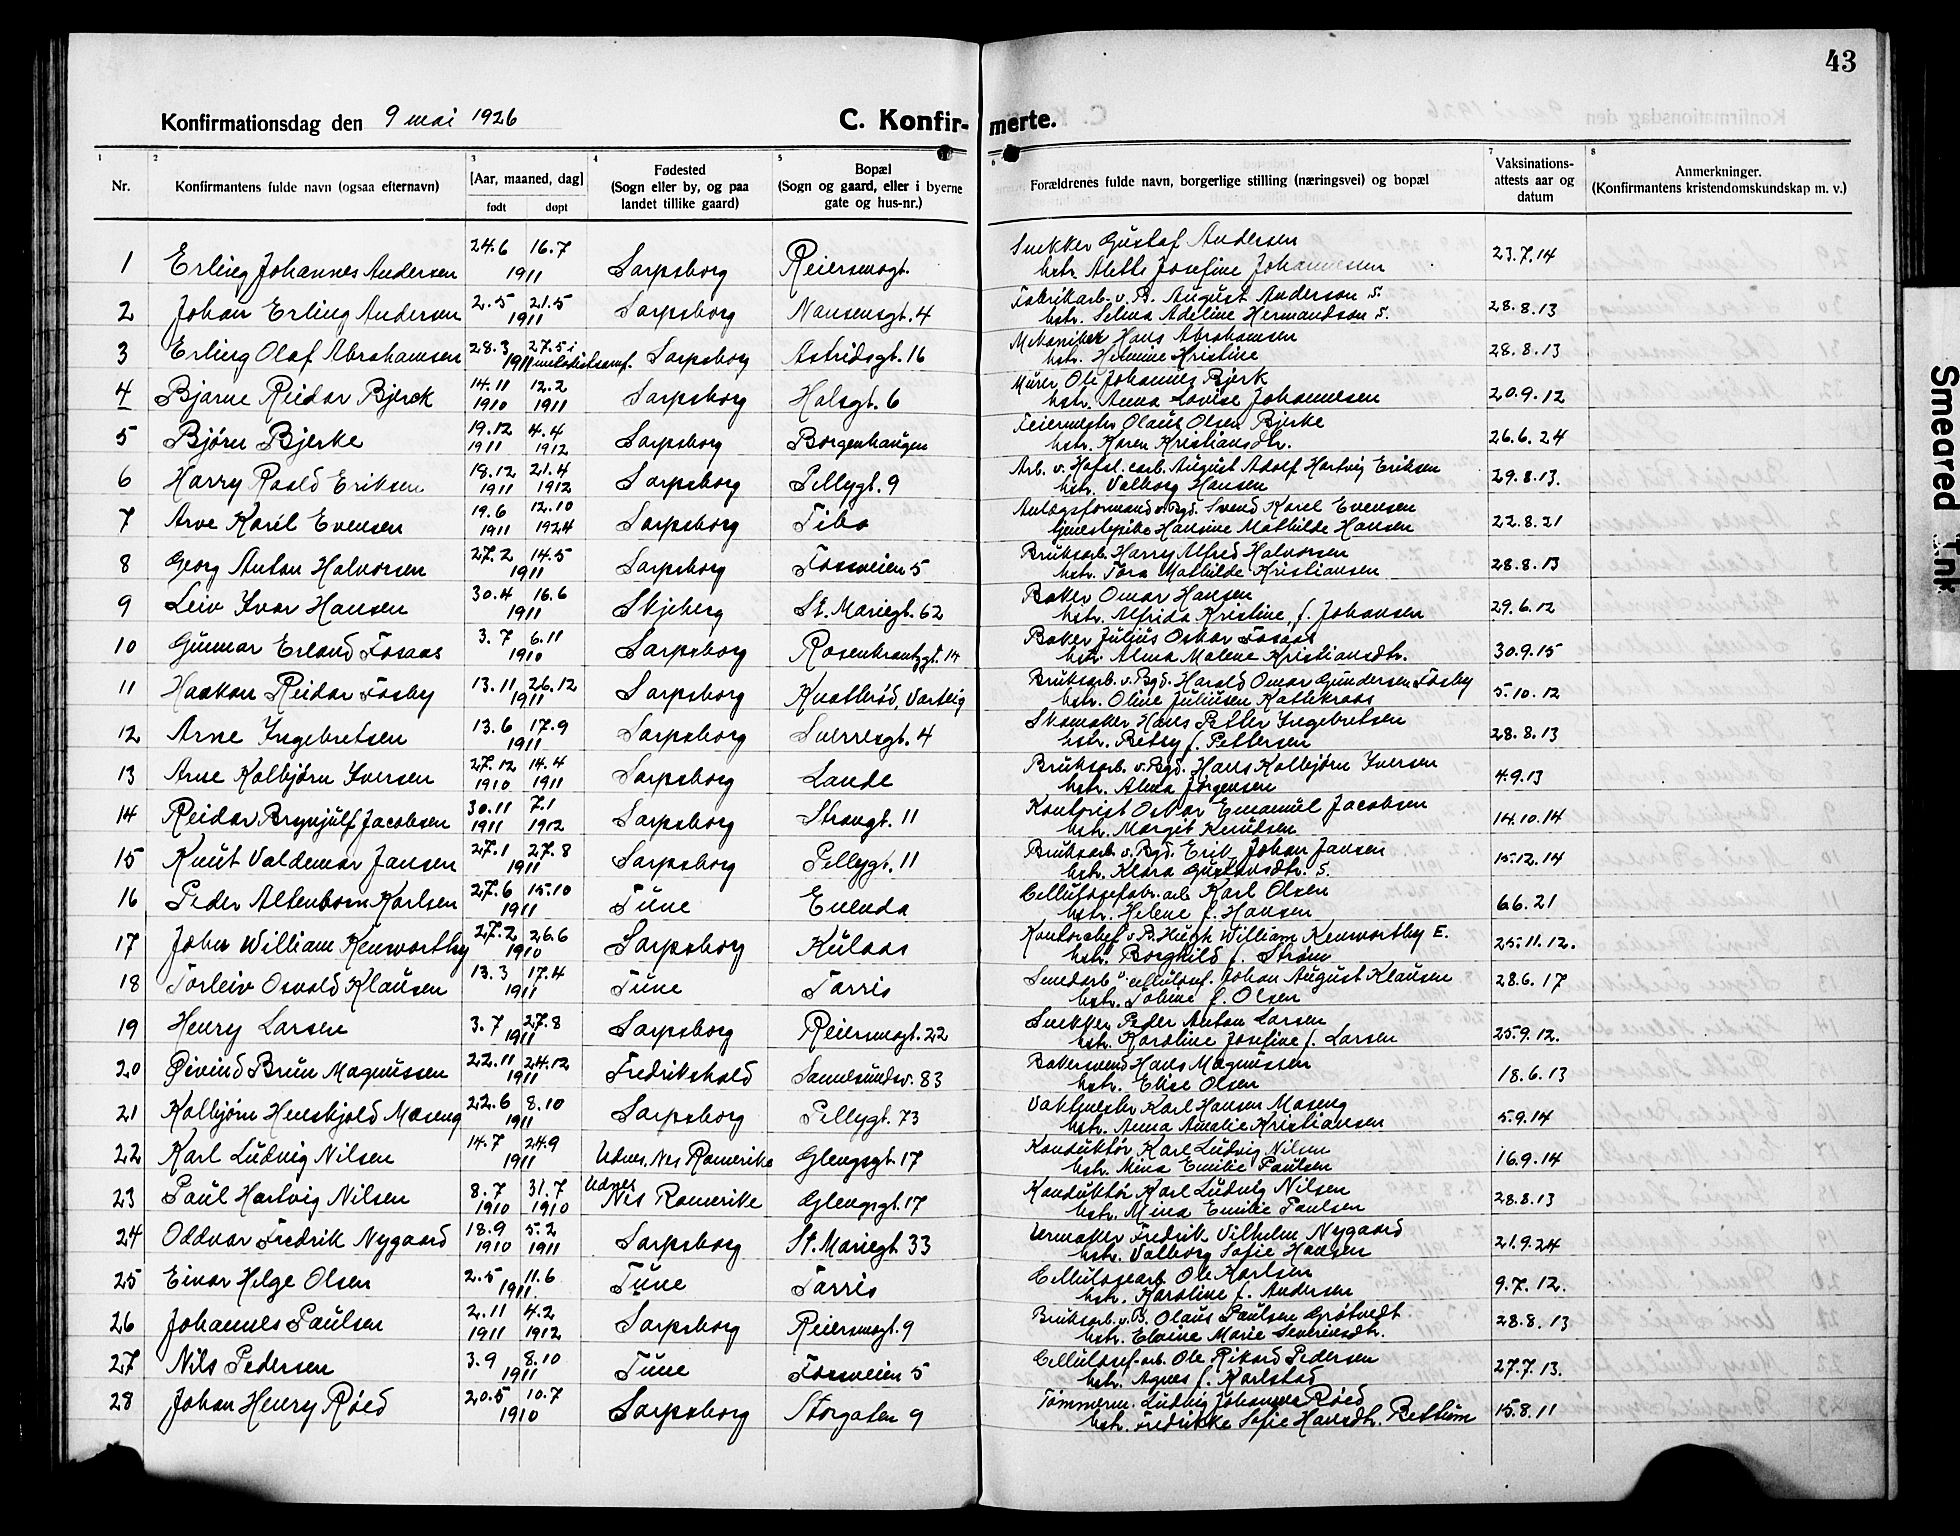 43
Konfirmationsdag den 9 mai 1926
C. Konfirmerte.
1 2 3 4 5 6 7 8
Nr.
Konfirmantens fulde navn (ogsaa efternavn)
[Aar, maaned, dag]
født døpt
Fødested
(Sogn eller by, og paa
landet tillike gaard)
Bopæl
(Sogn og gaard, eller i byerne
gate og hus-nr.)
Forældrenes fulde navn, borgerlige stilling (næringsvei) og bopæl
Vaksinations-
attests aar og
datum
Anmerkninger.
(Konfirmantens kristendomskundskap m. v.)
1 Erling Johannes Andersen 24.6 16.7 1911 Sarpsborg Reiersengt. Snekker Gustaf Andersen
hstr. Alette Josefine Johannessen 23.7.14
2 Johan Erling Andersen 2.5 21.5 1911 Sarpsborg Nansensgt. 4 Fabrikarb. v. B. August Anderson S.
hstr. Selma Adeline Hermandson S. 28.8.13
3 Erling Olaf Abrahamsen 28.3 27.5 i 1911 metodistsamf. Sarpsborg Astridsgt. 16 Mekaniker Hans Abrahamsen
hstr. Helmine Kristine 28.8.13
4 Bjarne Reidar Bjerck 14.11 1910 12.2 1911 Sarpsborg Halsgt. 6 Murer Ole Johannes Bjerk
hstr. Anna Lovise Johannesen 20.9.12
5 Bjørn Bjerke 19.12 1911 4.4 1912 Sarpsborg Borgenhaugen Feiermester Olaus Olsen Bjerke
hstr. Karen Kristiansdtr. 26.6.24
6 Harry Roald Eriksen 18.12 1911 21.4 1912 Sarpsborg Pellygt. 9 Arb. v. Hafsl. carb. August Adolf Hartvig Eriksen
hstr. Valborg Hansen 29.8.13.
7 Arve Karel Evensen 19.6 1911 12.10 1924 Sarpsborg Tibo Anlægsformand v. Bgd. Svend Karel Evensen
tjenestepike Hansine Mathilde Hansen 22.8.21
8 Georg Anton Halvorsen 27.2 14.5 1911 Sarpsborg Fosseveien 5 Bruksarb. Harry Alfred Halvorsen
hstr. Tora Mathilde Kristiansen 28.8.13
9 Leiv Ivar Hansen 30.4 16.6 1911 Skjeberg St. Mariegt. 62 Baker Omar Hansen
hstr. Alfrida Kristine, f. Johansen 29.6.12
10 Gunnar Erland Fosaas 3.7 6.11 1910 Sarpsborg Rosenkrantzgt. 14 Baker Julius Oskar Fosaas
hstr. Alma Malene Kristiansdtr. 30.9.15
11 Haakon Reidar Fosby 13.11 26.12 1911 Sarpsborg Knatterød, Varteig Bruksarb. v. Bgd. Harald Omar Gundersen Fosby
hstr. Oline Juliusen Kattekraas 5.10.12
12 Arne Ingebretsen 13.6 17.9 1911 Sarpsborg Sverresgt. 4 Skomaker Hans Petter Ingebretsen
hstr. Betsy f. Pettersen 28.8.13
13 Arne Kolbjørn Iversen 27.12 1910 14.4 1911 Sarpsborg Lande Bruksarb. v. Bgd. Hans Kolbjørn Iversen
hstr. Alma Jørgensen 4.9.13
14 Reidar Brynjulf Jacobsen 30.11 1911 7.1 1912 Sarpsborg Strangt. 11 Kontorist Oskar Emanuel Jacobsen
hstr. Margit Knudsen 14.10.14
15 Knut Valdemar Jansen 27.1 27.8 1911 Sarpsborg Pellygt. 11 Bruksarb. v. Bgd. Erik Johan Jansen
hstr. Klara Gustavsdtr. S. 15.12.14
16 Peder Altenborn Karlsen 27.6 15.10 1911 Tune Enenda Cellulosefabr. arb Karl Olsen
hstr. Helene f. Hansen 6.6.21
17 John William Kenworthy 27.2 26.6 1910 Sarpsborg Kulaas Kontorchef v. B. Hugh William Kenworthy E.
hstr. Borghild f. Strøm 25.11.12.
18 Torleiv Osvald Klausen 13.3 17.4 1911 Tune Tarris Smedarb. v. cellulosef. Johan August Klausen
hstr. Tomine f. Olsen 28.6.17
19 Henry Larsen 3.7 27.8 1911 Sarpsborg Reiersengt. 22 Snekker Peder Anton Larsen
hstr. Karoline Josefine f. Larsen 25.9.12.
20 Øivind Brun Magnussen 22.11 24.12 1911 Fredrikshald Sannesundsv. 83 Bakersvend Hans Magnussen
hstr. Elise Olsen 18.6.13
21 Kolbjørn Henskjold Moseng 22.6 8.10 1911 Sarpsborg Pellygt. 73 Vaktmester Karl Hansen Moseng
hstr. Anna Amalie Kristiansen 5.9.14
22 Karl Ludvig Nilsen 14.7 24.9 1911 Udnes. Nes Romerike Glengsgt. 17 Konduktør Karl Ludvig Nilsen
hstr. Mina Emilie Paulsen 16.9.14
23 Paul Hartvig Nilsen 8.7 1910 31.7 1910 Udnes Nes Romerike Glengsgt. 17 Konduktør Karl Ludvig Nilsen
hstr. Mina Emilie Paulsen 28.8.13
24 Oddvar Fredrik Nygaard 18.9 1910 5.2 1911 Sarpsborg St. Mariegt 33 Urmaker Fredrik Vilhelm Nygaard
hstr. Valborg Sofie Hansen 21.9.24
25 Einar Helge Olsen 2.5 11.6 1911. Tune Tarris Cellulosearb. Ole Karlsen
hstr. Karoline f. Andersen 9.7.12.
26 Johannes Paulsen 2.11 1911 4.2 1912 Sarpsborg Reiersengt. 9 Bruksarb. v. B. Olaus Paulsen Grøtvedt
hstr. Elvine Marie Severinsdtr. 28.8.13
27 Nils Pedersen 3.9 8.10 1911 Tune Fosseveien 5 Cellulosef.-arb. Ole Rikard Pedersen
hstr. Agnes f. Karlstad 27.7.13.
28 Johan Henry Røed 20.5 10.7 1910 Sarpsborg Storgaten 9 Tømmerm. Ludvig Johannes Røed
hstr. Fredrikke Sofie Hansdtr. Bettum 15.8.11
Smeared Ink